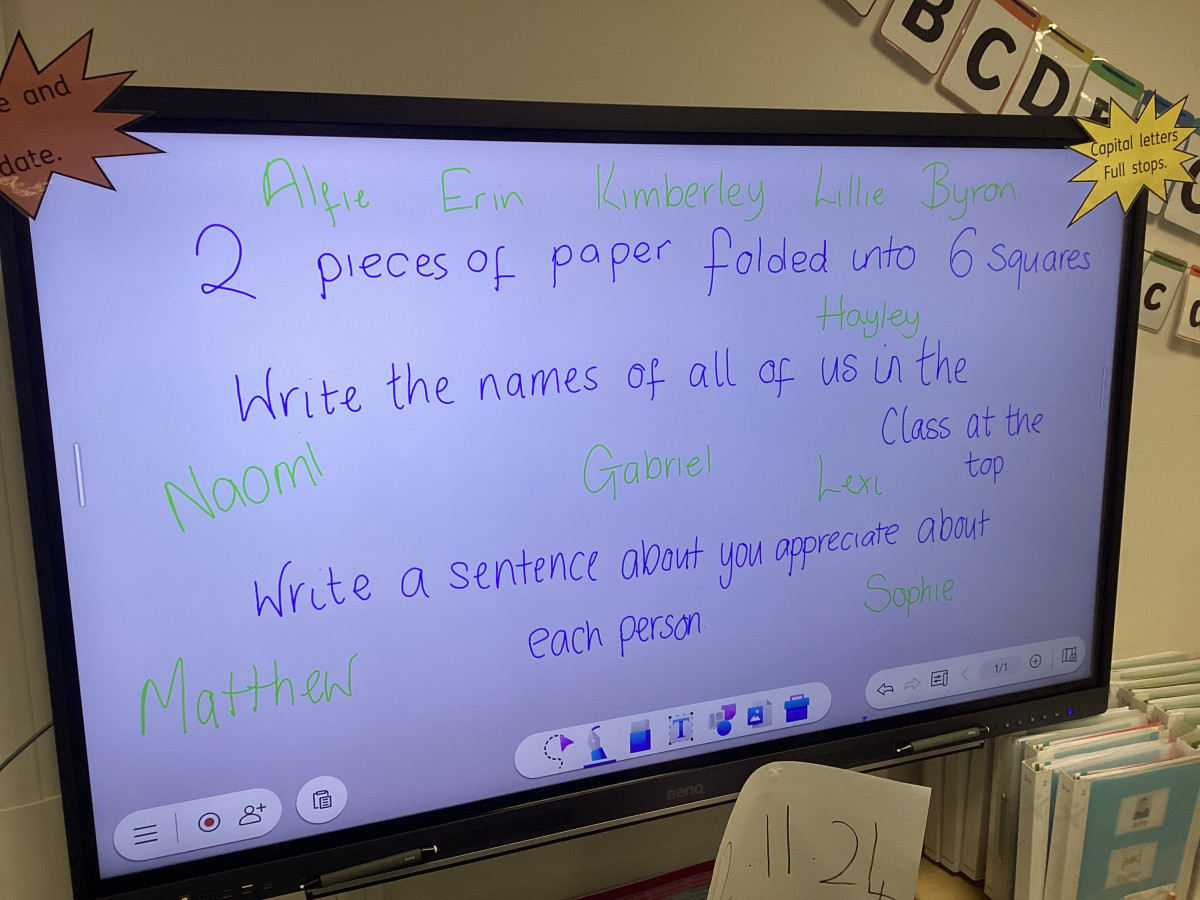 B C D E
e and
date.
Capital letters
Full stops.
C
C
Alfie Erin Kimberley Lillie Byron
2 pieces of paper folded into 6 squares
Hayley
Write the names of all of us in the
Class at the
top.
Naomi Gabriel Lexi
Write a sentence about you appreciate about
each person.
Sophie
Matthew
1/1
T
BenQ
.11.24
ABC